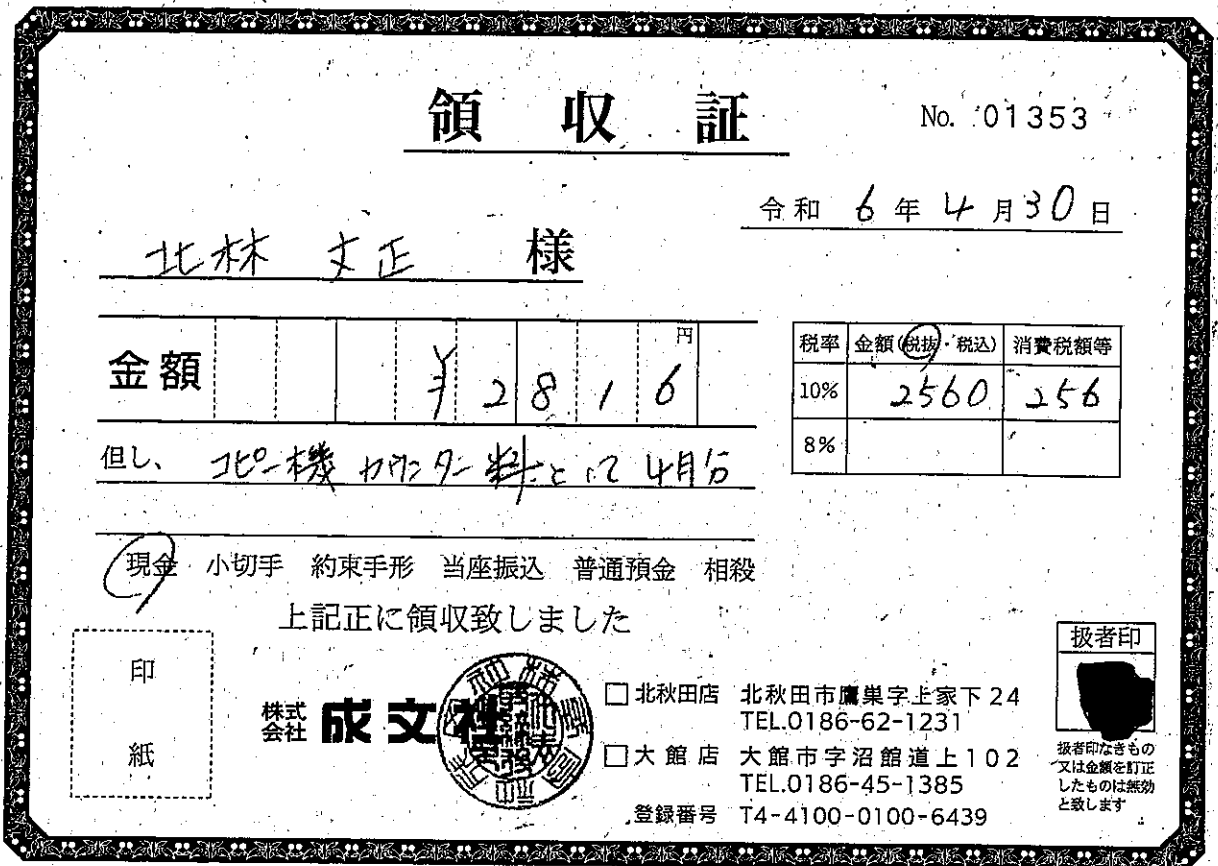 領収証
No. 01353
令和 6年 4月30日
北林 丈正 様
金額 ¥2816円
税率 金額(税抜・税込) 消費税額等
10% 2560 256
8%
但し、コピー機カウンター料として4月分
現金 小切手 約束手形 当座振込 普通預金 相殺
上記正に領収致しました
印
紙
株式会社 成文社
□北秋田店 北秋田市鷹巣字上家下24
TEL.0186-62-1231
□大館店 大館市字沼館道上102
TEL.0186-45-1385
登録番号 T4-4100-0100-6439
扱者印
扱者印なきもの
又は金額を訂正
したものは無効
と致します